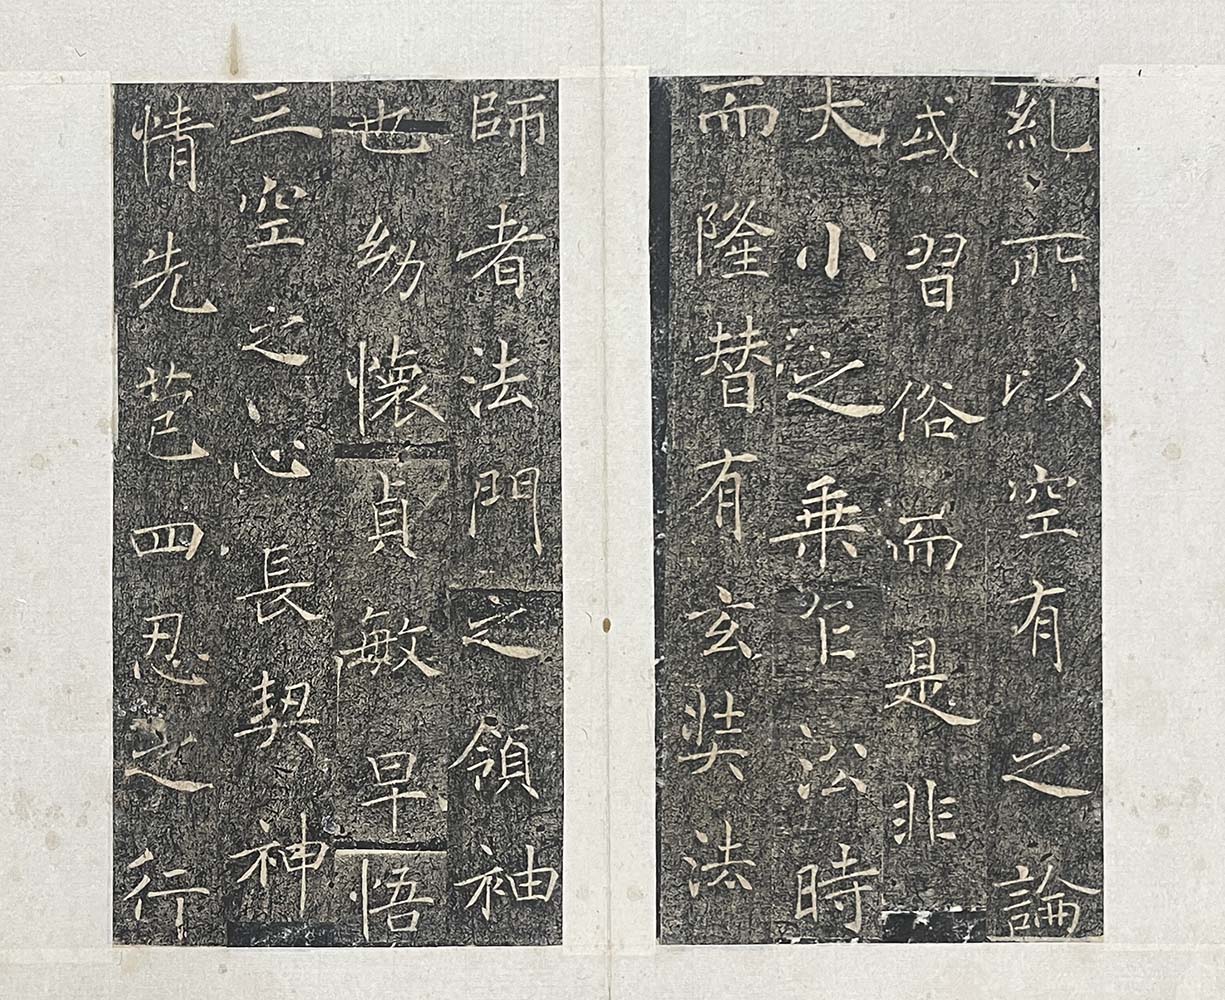 糺所以空有之論
或習俗而是非
大小之乘乍沿時
而隆替有玄奘法
師者法門之領袖
也幼懷貞敏早悟
三空之心長契神
情先苞四忍之行